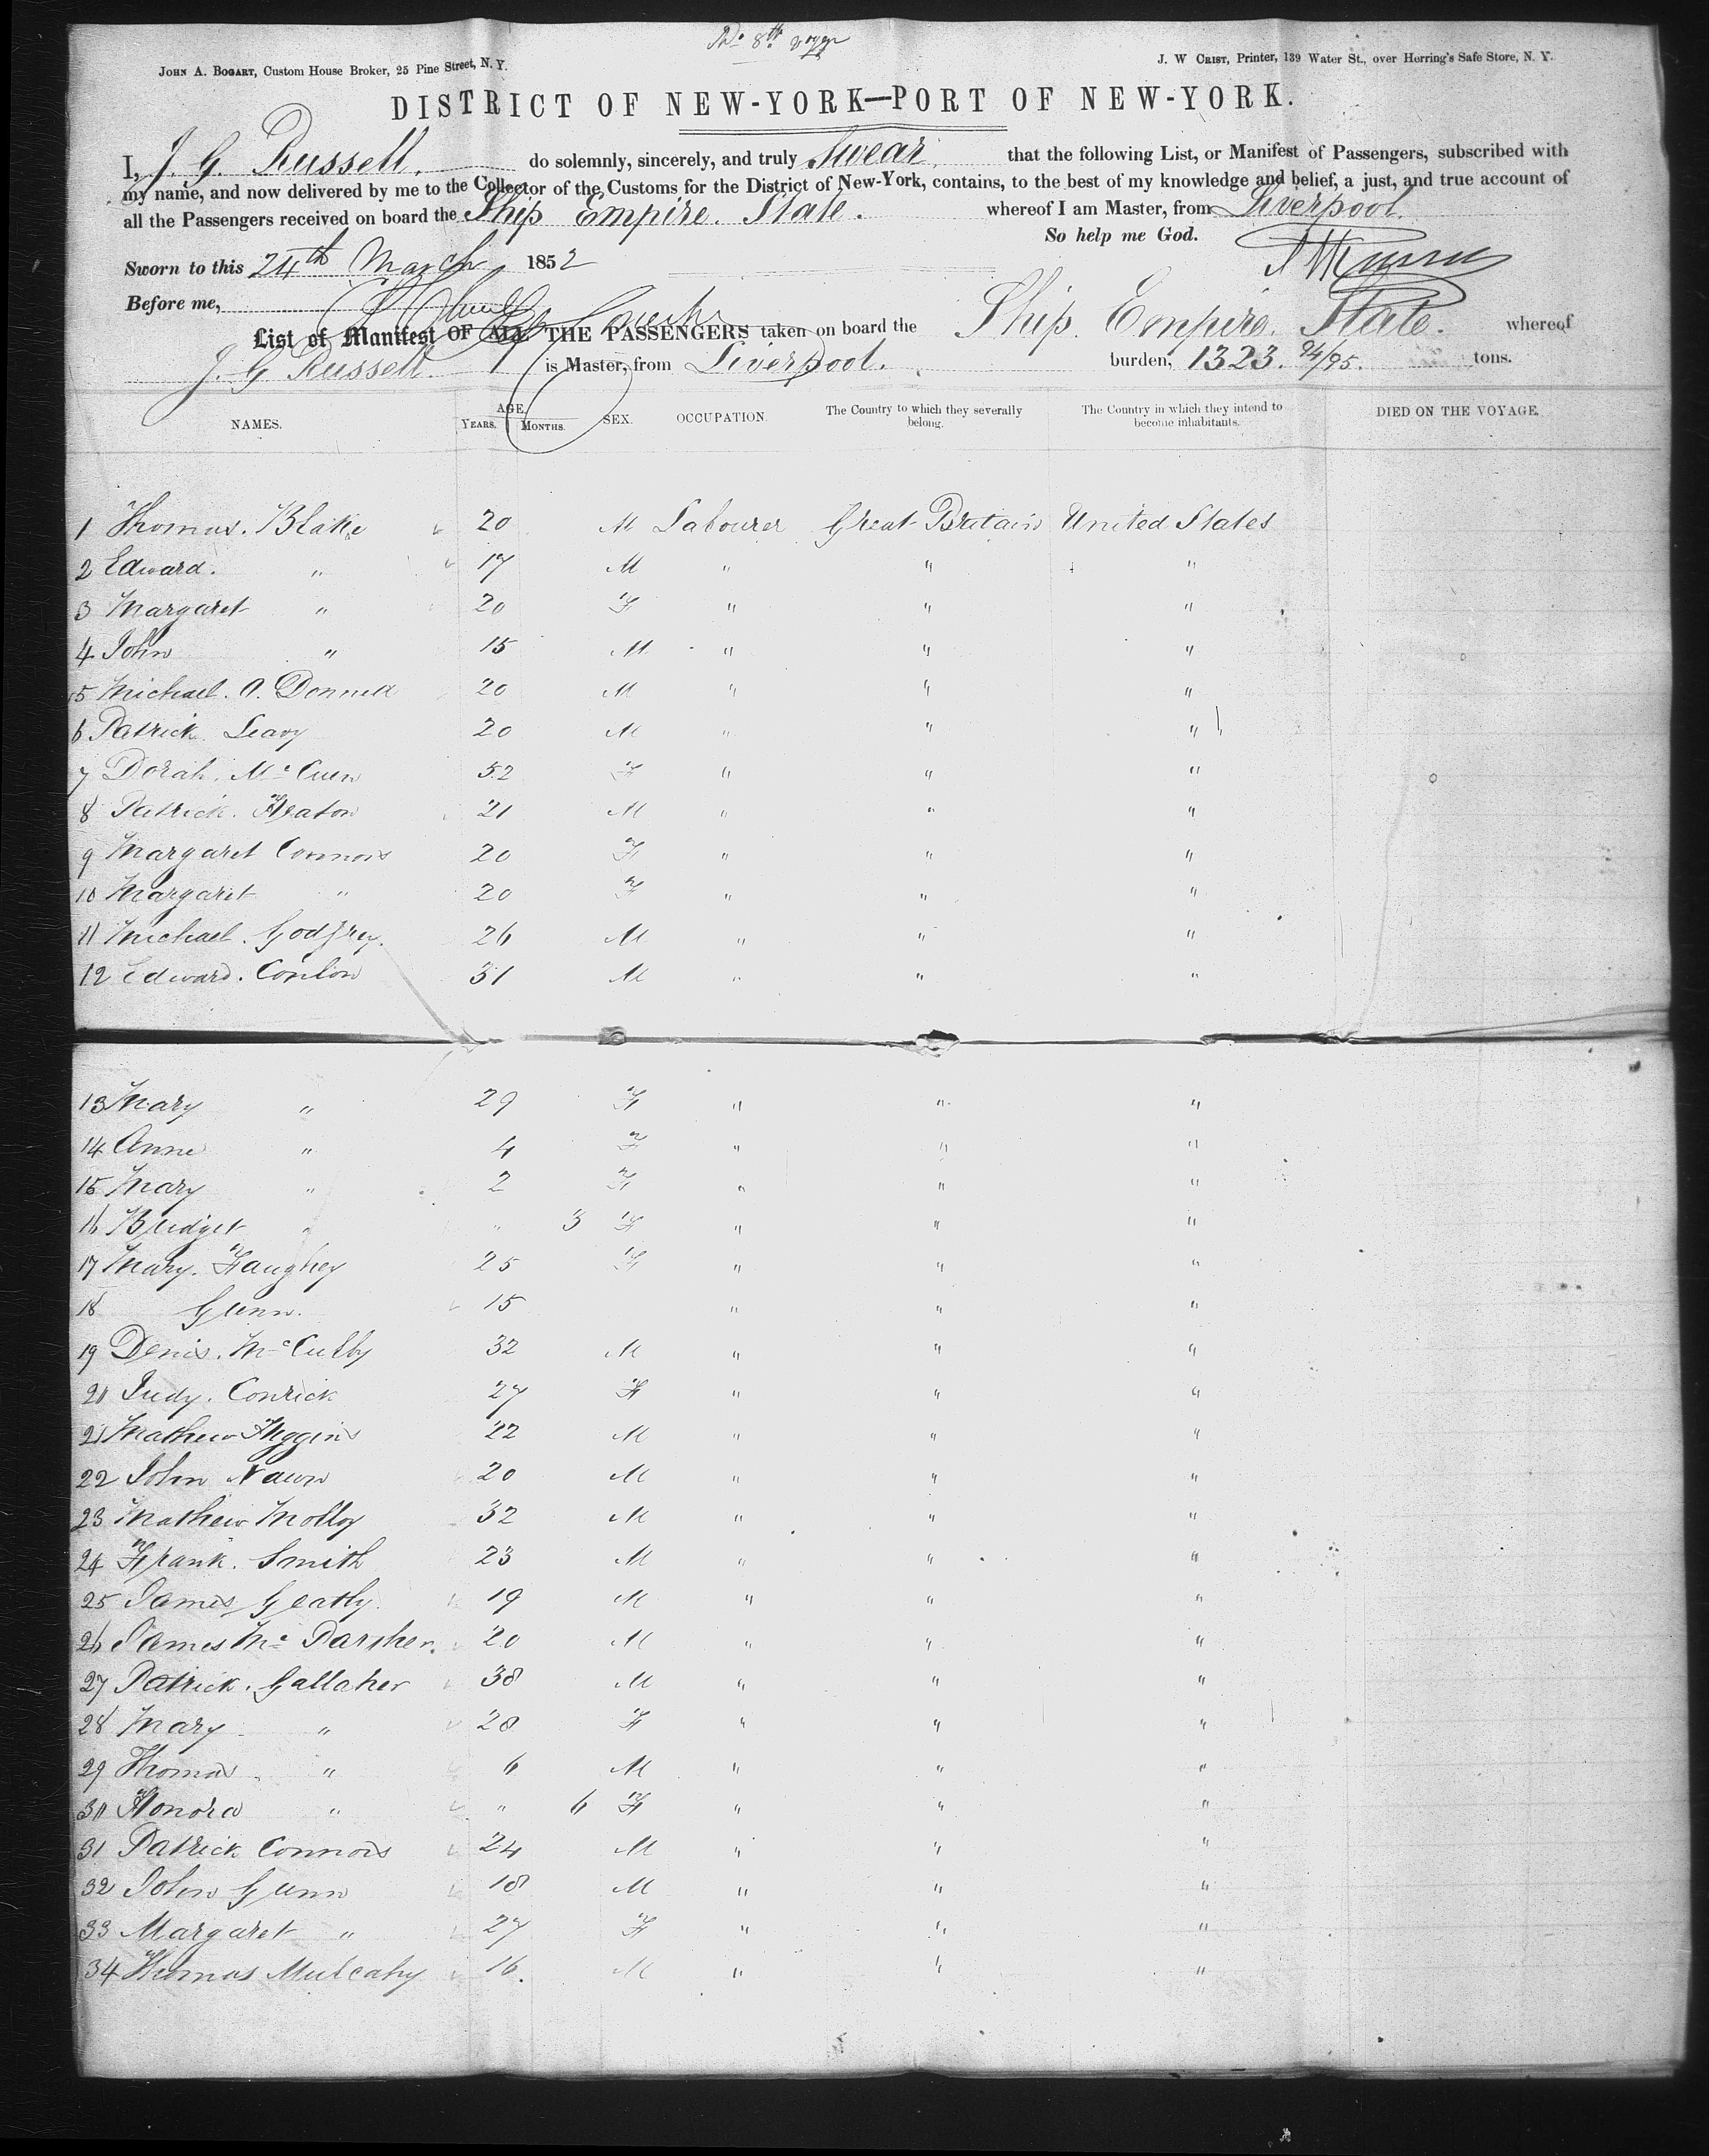 No 8th voyage
JOHN A. BOGART, Custom House Broker, 25 Pine Street, N. Y.
J. W CRIST, Printer, 139 Water St., over Herring's Safe Store, N. Y.
DISTRICT OF NEW-YORK—PORT OF NEW-YORK.
I, J. G. Russell. do solemnly, sincerely, and truly Swear that the following List, or Manifest of Passengers, subscribed with
my name, and now delivered by me to the Collector of the Customs for the District of New-York, contains, to the best of my knowledge and belief, a just, and true account of
all the Passengers received on board the Ship Empire. State. whereof I am Master, from Liverpool.
So help me God.
Sworn to this 24th March 1852
Before me,
List of Manifest OF ALL THE PASSENGERS taken on board the Ship. Empire. State. whereof
J. G Russell. is Master, from Liverpool. burden, 1323. 94/95. tons.
NAMES. AGE. YEARS. MONTHS. SEX. OCCUPATION. The Country to which they severally belong. The Country in which they intend to become inhabitants. DIED ON THE VOYAGE.
1 Thomas. Blake 20 M Labourer Great Britain United States
2 Edward. " 17 M " " "
3 Margaret " 20 F " " "
4 John " 15 M " " "
5 Michael. O. Donnell 20 M " " "
6 Patrick Leavy 20 M " " "
7 Dorah. Mc Cuen 52 F " " "
8 Patrick. Heaton 21 M " " "
9 Margaret Connors 20 F " " "
10 Margaret " 20 F " " "
11 Michael. Godfrey. 26 M " " "
12 Edward. Conlon 31 M " " "
13 Mary " 29 F " " "
14 Anne " 4 F " " "
15 Mary " 2 F " " "
16 Bridget " " 3 F " " "
17 Mary. Haughey 25 F " " "
18 Gunn. 15 " " "
19 Denis. Mc Culby 32 M " " "
20 Judy. Conrick 27 F " " "
21 Mathew Higgins 22 M " " "
22 John Nawn 20 M " " "
23 Mathew Molloy 32 M " " "
24 Frank. Smith 23 M " " "
25 James Geatly. 19 M " " "
26 James Mc Parsher. 20 M " " "
27 Patrick. Gallaher 38 M " " "
28 Mary " 28 F " " "
29 Thomas " 6 M " " "
30 Honora " " 6 F " " "
31 Patrick Connors 24 M " " "
32 John Gunn 18 M " " "
33 Margaret " 27 F " " "
34 Thomas Mulcahy 16. M " " "